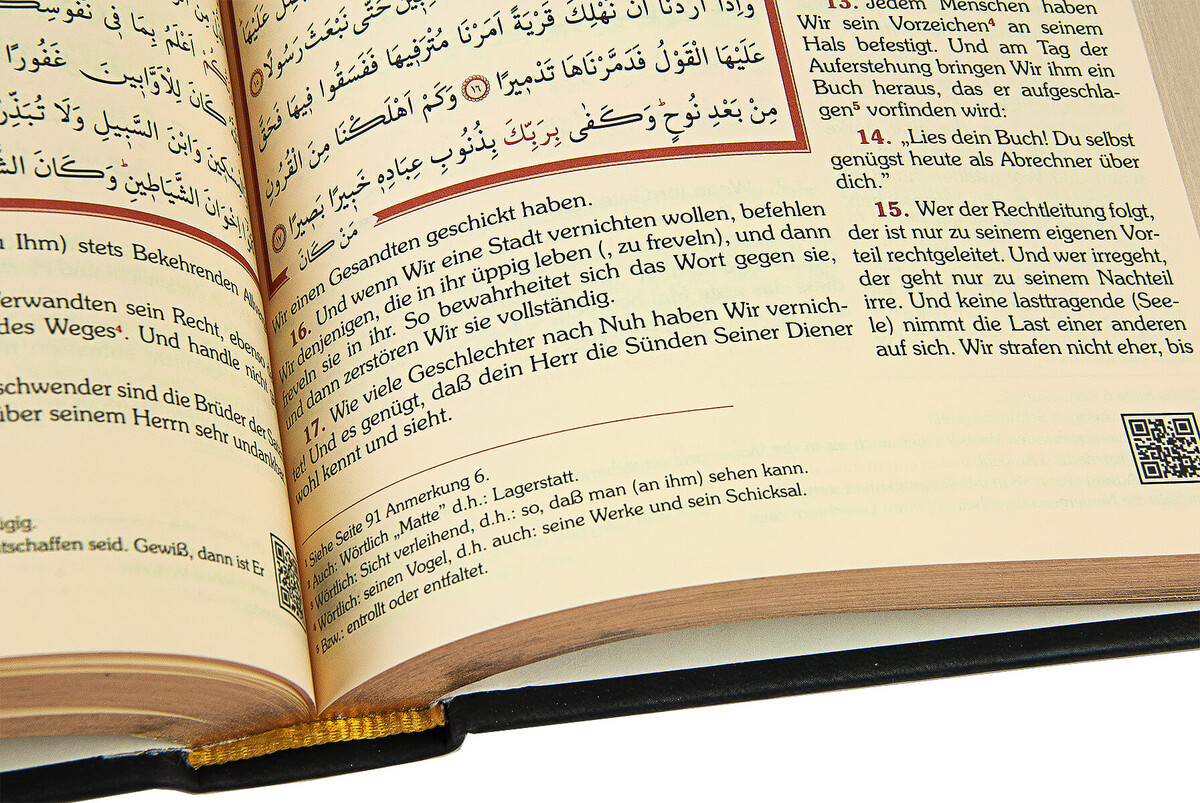 عَلَيْهَا
اَعْلَمُ بِمَا ف۪ي نُفُوسِكُمْ
كَانَ لِلْاَوَّاب۪ينَ غَفُورًا
وَابْنَ السَّب۪يلِ وَلَا تُبَذِّرْ
اِخْوَانَ الشَّيَاط۪ينِ وَكَانَ
Ihm) stets Bekehrenden
erwandten sein Recht, ebenso
des Weges⁴. Und handle nicht
schwender sind die Brüder der
über seinem Herrn sehr undankbar
ügig.
tschaffen seid. Gewiß, dann ist Er
حَتّٰى نَبْعَثَ رَسُولًا ﴿١٥﴾ وَاِذَٓا اَرَدْنَٓا اَنْ نُهْلِكَ قَرْيَةً اَمَرْنَا مُتْرَف۪يهَا فَفَسَقُوا ف۪يهَا فَحَقَّ
عَلَيْهَا الْقَوْلُ فَدَمَّرْنَاهَا تَدْم۪يرًا ﴿١٦﴾ وَكَمْ اَهْلَكْنَا مِنَ الْقُرُونِ
مِنْ بَعْدِ نُوحٍ وَكَفٰى بِرَبِّكَ بِذُنُوبِ عِبَادِه۪ خَب۪يرًا بَص۪يرًا ﴿١٧﴾
مَنْ كَانَ
13. Jedem Menschen haben
Wir sein Vorzeichen⁴ an seinem
Hals befestigt. Und am Tag der
Auferstehung bringen Wir ihm ein
Buch heraus, das er aufgeschla-
gen⁵ vorfinden wird:
14. „Lies dein Buch! Du selbst
genügst heute als Abrechner über
dich.”
15. Wer der Rechtleitung folgt,
der ist nur zu seinem eigenen Vor-
teil rechtgeleitet. Und wer irregeht,
der geht nur zu seinem Nachteil
irre. Und keine lasttragende (See-
le) nimmt die Last einer anderen
auf sich. Wir strafen nicht eher, bis
Wir einen Gesandten geschickt haben.
16. Und wenn Wir eine Stadt vernichten wollen, befehlen
Wir denjenigen, die in ihr üppig leben (, zu freveln), und dann
freveln sie in ihr. So bewahrheitet sich das Wort gegen sie,
und dann zerstören Wir sie vollständig.
17. Wie viele Geschlechter nach Nuh haben Wir vernich-
tet! Und es genügt, daß dein Herr die Sünden Seiner Diener
wohl kennt und sieht.
¹ Siehe Seite 91 Anmerkung 6.
² Auch: Wörtlich „Matte” d.h.: Lagerstatt.
³ Wörtlich: Sicht verleihend, d.h.: so, daß man (an ihm) sehen kann.
⁴ Wörtlich: seinen Vogel, d.h. auch: seine Werke und sein Schicksal.
⁵ Bzw.: entrollt oder entfaltet.